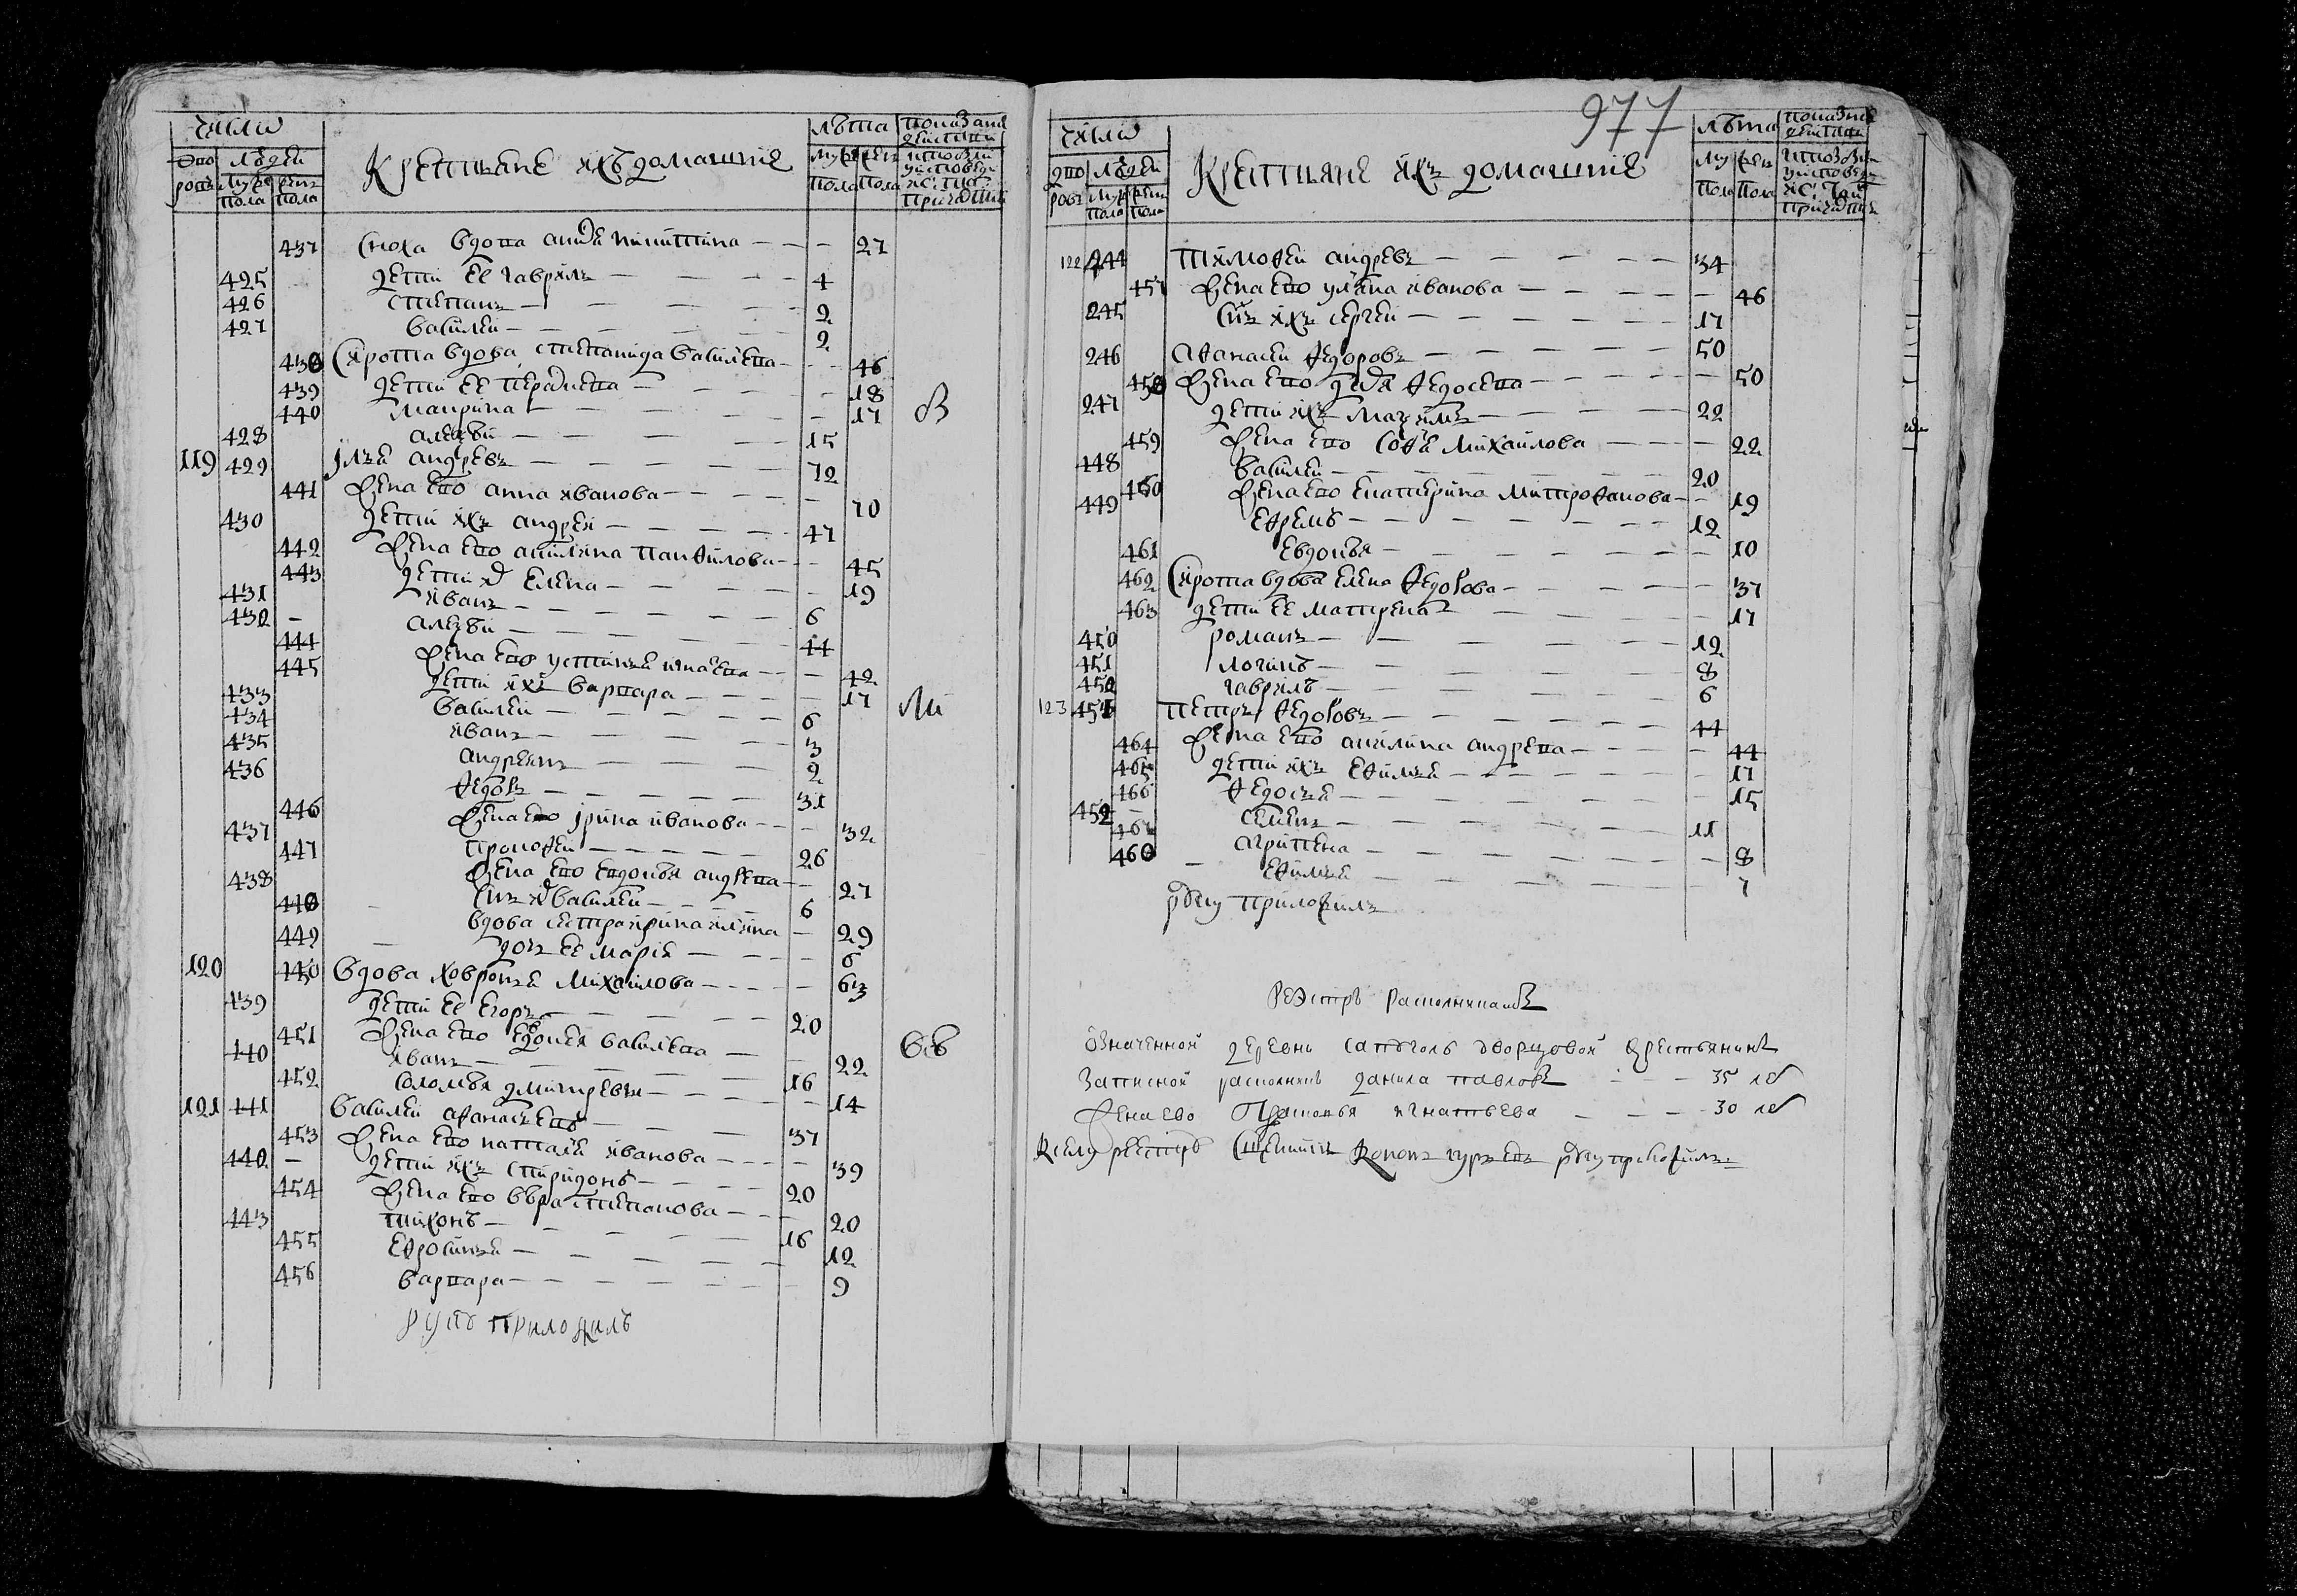 число
Дво
ровъ
людей
муж
пола
жен
пола
Крестьяне ихъ домашние
лѣта
муж
пола
жен
пола
437 Сноха вдова авдѣя никитина 27
425 дети ее гаврилъ 4
426 степанъ 2
427 василеи 2
438 Сирота вдова степанида василева 46
439 дети ее 18
440 маврина 17
428 алеѯѣи 15
119 429 Ілья андревъ 72
441 Жена ево анна иванова 70
430 дети ихъ андреи 47
442 Жена ево акилина панфилова 45
443 дети их елена 19
431 иванъ 6
432 алеѯѣи 44
444 Жена ево устинья игнатева 42
445 дети ихъ варвара 17
433 василеи 6
434 иванъ 3
435 андреянъ 2
436 федоръ 31
446 Жена ево ірина иванова 32
437 прокофеи 26
447 Жена ево евдокѣя андрева 27
438 Сынъ их василеи 6
448 вдова сестра ирина илина 29
449 дочь ее марія 6
120 450 Вдова ховронья михаилова 63
439 дети ее егоръ 20
451 Жена ево евдокѣя василева 22
440 иванъ 16
452 Соломѣя дмитревна 14
121 441 Василеи афанасьевъ 37
453 Жена ево наталя иванова 39
442 дети ихъ спиридонъ 20
454 Жена ево вѣра степанова 20
443 тихонъ 16
455 ефросинья 12
456 варвара 9
руку приложилъ
977
число
Дво
ровъ
людей
муж
пола
жен
пола
Крестьяне ихъ домашние
лѣта
муж
пола
жен
пола
122 244 Тимофеи андревъ 34
457 Жена ево уляна иванова 46
245 Снъ ихъ сергеи 17
246 Афанасеи федоровъ 50
458 Жена ево федосева 50
247 дети ихъ маѯимъ 22
459 Жена ево софя михаилова 22
448 василеи 20
460 Жена ево екатерина митрофанова 19
449 ефремъ 12
461 евдокѣя 10
462 Сирота вдова елена федорова 37
463 дети ее матрена 17
450 романъ 12
451 логинъ 8
452 гаврилъ 6
123 451 Петръ федоровъ 44
464 Жена ево акилина андрева 44
465 дети ихъ ефимья 17
466 федосья 15
452 семенъ 11
467 агрипена 8
460 ефимья 7
руку приложилъ
Реэстръ расколникамъ
Означенной деревни дворцовой крестьянинъ
Записной расколникъ данила павловъ 35 лѣ
Жена ево Прасковья игнатьева 30 лѣ
К сему реестру Священникъ руку приложилъ